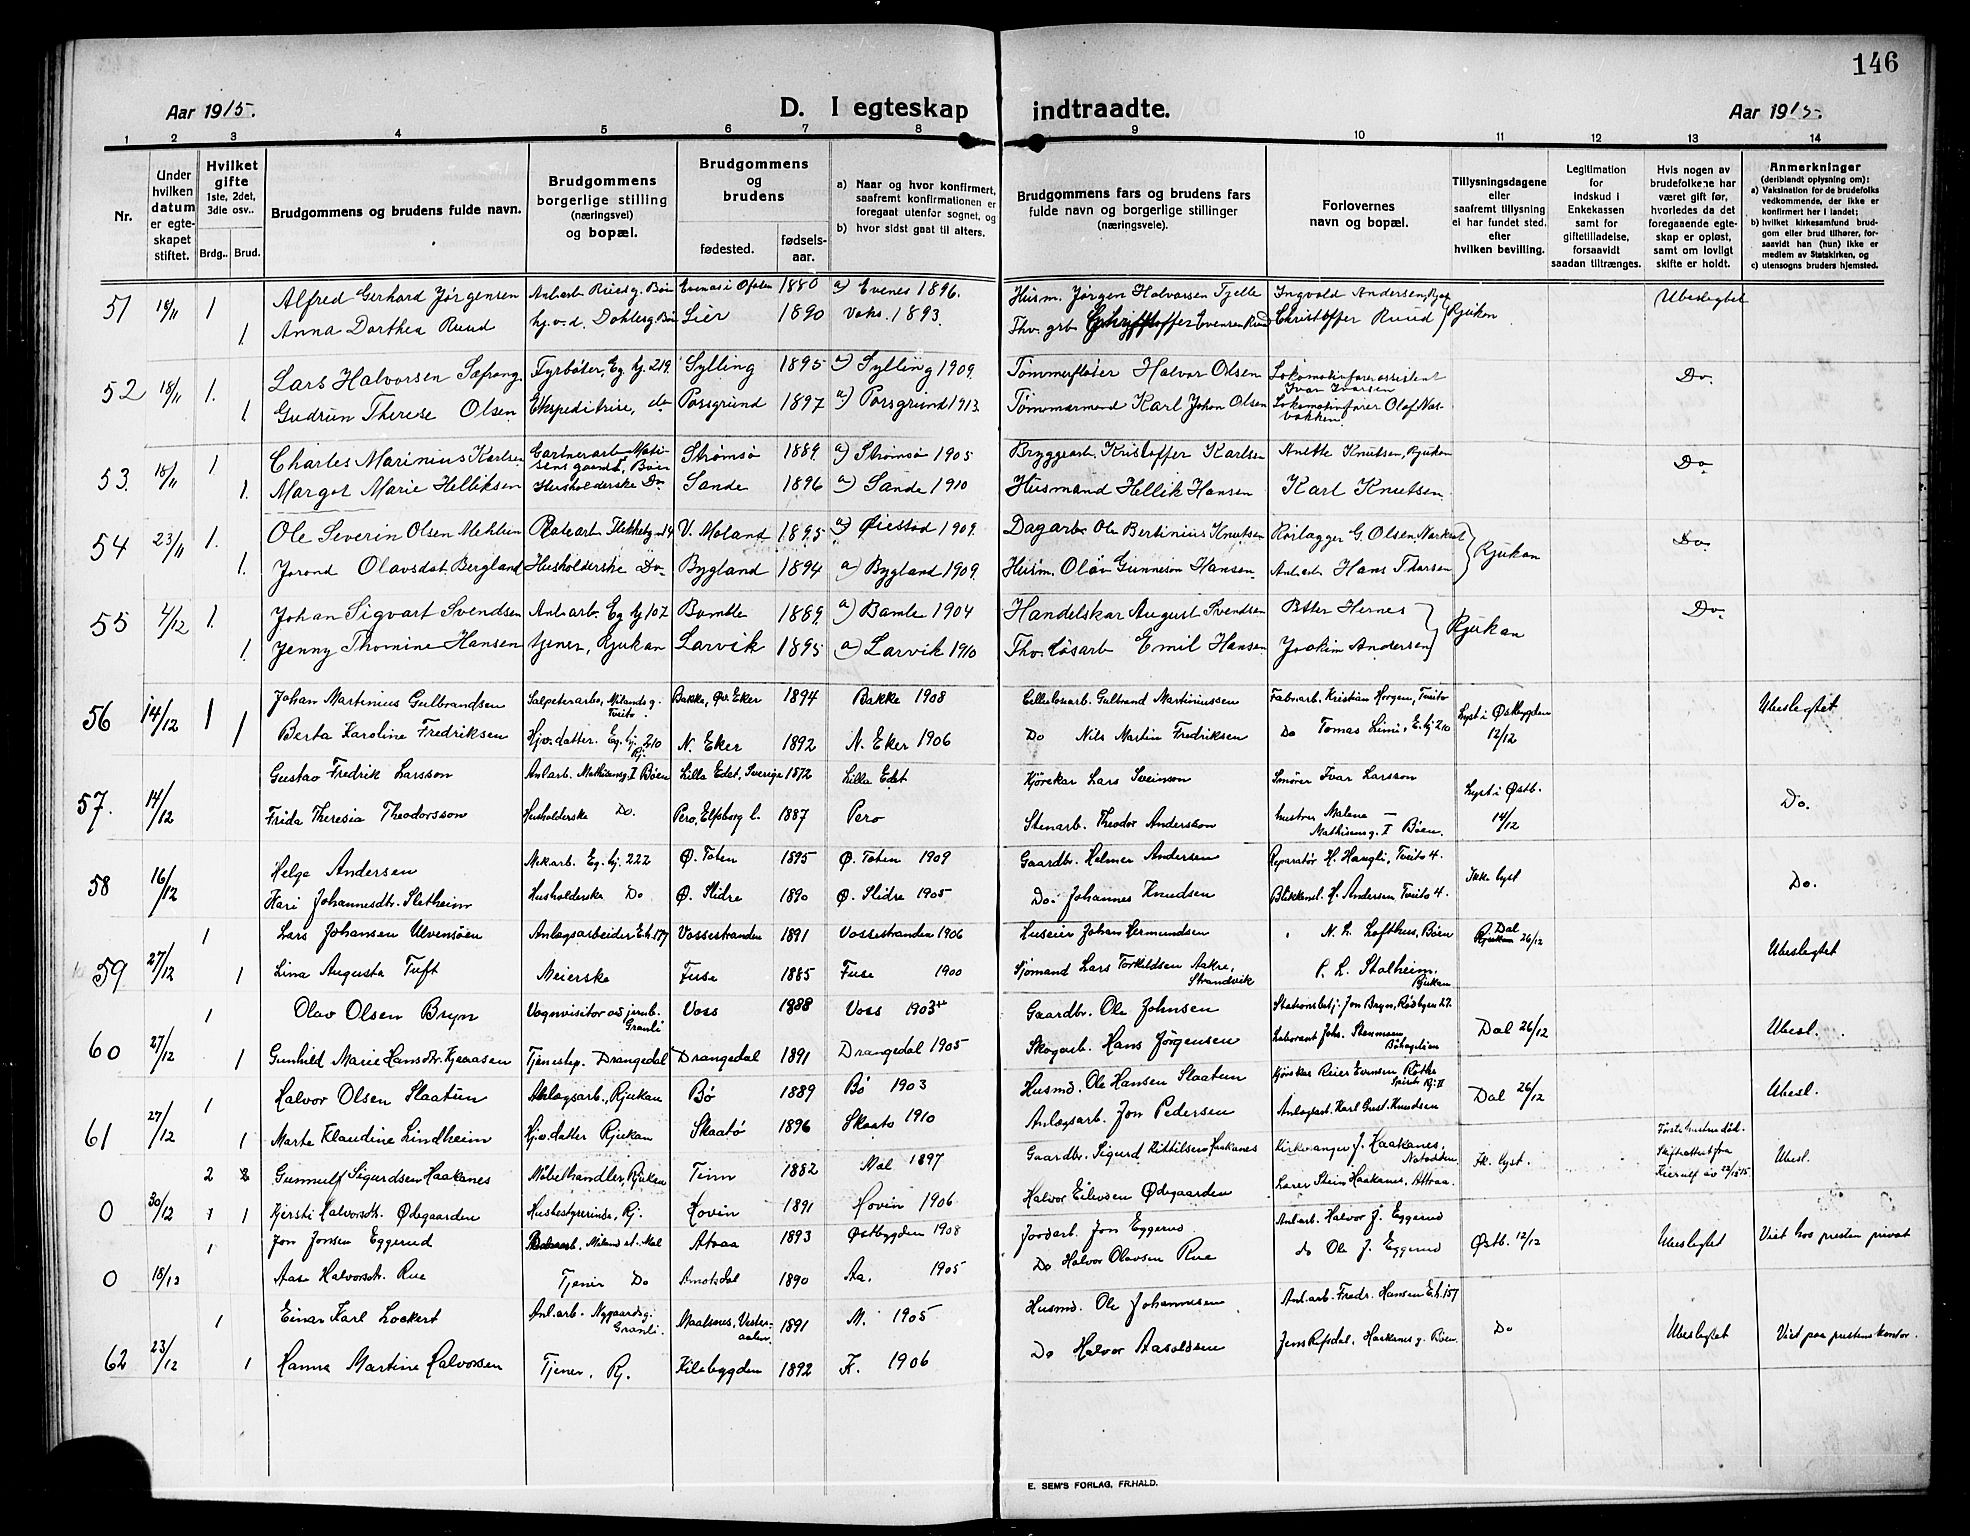 146
Aar 1915.
D. I egteskap indtraadte.
Aar 1915.
1 2 3 4 5 6 7 8 9 10 11 12 13 14
Nr.
Under hvilken datum er egteskapet stiftet.
Hvilket gifte 1ste, 2det, 3die osv..
Brdg.. Brud.
Brudgommens og brudens fulde navn.
Brudgommens borgerlige stilling (næringsvei) og bopæl.
Brudgommens og brudens
fødested. fødselsaar.
a) Naar og hvor konfirmert, saafremt konfirmationen er foregaat utenfor sognet, og
b) hvor sidst gaat til alters.
Brudgommens fars og brudens fars fulde navn og borgerlige stillinger (næringsveie).
Forlovernes navn og bopæl.
Tillysningsdagene eller saafremt tillysning ei har fundet sted, efter hvilken bevilling.
Legitimation for Indskud i Enkekassen samt for giftetilladelse, forsaavidt saadan tiltrænges.
Hvis nogen av brudefolkene har været gift før, hvorledes da det foregaaende egteskap er opløst, samt om lovligt skifte er holdt.
Anmerkninger (deriblandt oplysning om):
a) Vaksination for de brudefolks vedkommende, der ikke er konfirmert her i landet;
b) hvilket kirkesamfund brudgom eller brud tilhører, forsaavidt han (hun) ikke er medlem av Statskirken, og
c) utensogns bruders hjemsted.
51 1 Alfred Gerhard Jørgensen Evenes i Ofoten 1880 a) Evenes 1896. Husm. Jørgen Halvorsen Tjelle Ingvald Andersen, Rjukan Ubeslegtet
1. Anna Dorthea Ruud Lier 1890 Vaks. 1893. Christoffer Evensen Ruud Christoffer Ruud Rjukan
52 18/11 1. Lars Halvorsen Fyrbøter, Eg. hj. 219. Sylling 1895 a) Sylling 1909. Tømmerfløter Halvor Olsen Lokomotivførerassistent Ivar Iversen Do.
1 Gudrun Therese Olsen Ekspeditrise, do Porsgrund 1897 a) Porsgrund 1913. Tømmermand Karl Johan Olsen Lokomotivfører Olaf Nasbakken
53. 18/11 1 Charles Marinius Karlsen Gartnerarb. Bøen Strømsø 1889. a) Strømsø 1905 Bryggearb. Kristoffer Karlsen Anette Knutsen, Rjukan Do
1. Margot Marie Helliksen Husholderske Do. Sande 1896 a) Sande 1910 Husmand Hellik Hansen Karl Knutsen.
54 23/11 1. Ole Severin Olsen Mehlum V. Moland 1895 a) Øiestad 1909. Dagarb. Ole Bertinius Knutsen Rørlægger G. Olsen, Do.
1. Jorond Olavsdat. Bergland Husholderske Do. Bygland 1894 a) Bygland 1909. Husm. Olav Gunneson Hansen Anl.arb. Hans Thorsen Rjukan
55 4/12 1. Johan Sigvart Svendsen Anl.arb. Eg. hj 107 Bamble 1889. a) Bamle 1904 Handelskar August Svendsen Petter Hernes Do.
1. Jenny Thomine Hansen tjener, Rjukan Larvik 1895 a) Larvik 1910 Thv. løsarb Emil Hansen Joakim Andersen Rjukan
56 14/12 1 Johan Martinius Gulbrandsen Salpeterarb., Milandsg. Tveito Bakke, Øv. Eker 1894 Bakke 1908 Cellulosearb. Gulbrand Martiniussen Fabr.arb. Kristian Horgen, Tveito Lyst i Østbygden 12/12 Ubeslegtet
1 Berta Karoline Fredriksen Hjv. datter. Eg. hj. 210 Rj. N. Eker 1892 N. Eker 1906 Do Nils Martin Fredriksen Do Tomas Limi, E. hj 210
57. 14/12 Gustav Fredrik Larsson Anl.arb. Mathisensg. I Bøen Lilla Edet, Sverige 1872 Lilla Edet Kjørekar Lars Svenson Smører Ivar Larsson Lyst i Østb. 14/12 Do.
Frida Theresia Theodorsson Husholderske Do. Pero, Elfsborg l. 1887 Pero Stenarb. Theodor Andersson hustru Malena — Mathisensg. I Bøen.
58 16/12 Helge Andersen Mek.arb. Eg. hj. 222 Ø. Toten 1895 Ø. Toten 1909 Gaardbr. Helmer Andersen Reparatør H. Haugli, Tveito 4. Ikke lyst Do.
Kari Johannesdtr. Sletheim Husholderske Do Ø. Slidre 1890 Ø. Slidre 1905 Do. Johannes Knudsen Blikkensl. H. Andersen, Tveito 4.
59 27/12 1 Lars Johansen Ulvensøen Anlægsarbeider E.h. 177 Vossestranden 1891 Vossestranden 1906 Huseier Johan Hermundsen N. L. Lofthus, Bøen Dal Rjukan 26/12 Ubeslegtet
1 Lina Augusta Tuft Meierske Fuse 1885 Fuse 1900 Sjømand Lars Torkildsen Aakre, Strandvik P. L. Stalheim, Rjukan
60 27/12 1 Olav Olsen Bryn Vognvisitør ved jernb. Granli Voss 1888 Voss 1903 Gaardbr. Ole Johnsen Stationsbetj. Jon Bryn, Rødbyen 22. Dal 26/12 Ubesl.
1 Gunhild Marie Hansdtr. Kjeaasen Tjenestep. Drangedal Drangedal 1891 Drangedal 1905 Skogarb. Hans Jørgensen Laborant Johs. Stenmoen,
61 27/12 1 Halvor Olsen Slaatun Anlægsarb., Rjukan Bø 1889 Bø 1903 Husmd. Ole Hansen Slaatun Kjørekar Reier Evensen Røthe Dal 26/12 Ubesl.
1 Marte Klaudine Lindheim Hjv. datter Rjukan Skaatø 1896 Skaatø 1910 Anlægsarb. Jon Pedersen Anlægsarb. Karl Gust. Knudsen
0 30/12 2 2 Gunnulf Sigurdsen Haakanes Møbelhandler, Rjukan Tinn 1882 Mæl 1897 Gaardbr. Sigurd Kittilsen Haakanes Kirkesanger J. Haakanes, Notodden Ik. lyst. Første hustru død. Skifteattest fra Ubesl.
1 1 Kjersti Halvorsdtr. Ødegaarden Husbestyrerinde, Rj. Hovin 1891 Hovin 1906 Halvor Eilevsen Ødegaarden Lærer Stein Haakanes, Attraa.
0 18/12 1 Jon Jonsen Eggerud Miland st. Mæl Atraa 1893 Østbygden 1908 Jordarb. Jon Eggerud Anl.arb. Halvor J. Eggerud Østb. 12/12 Ubeslegtet Viet hos presten privat
Aase Halvorsdtr. Rue Tjener Do Amotsdal 1890 Aa. 1905 Do Halvor Olavsen Rue do Ole J. Eggerud
62 23/12 1 Einar Karl Lockert Anl.arb. Nygaardsg. Granli. Maalsnes, Vesteraalen 1891 M. 1905 Husmd. Ole Johannesen Anl.arb. Fredr. Hansen E.h. 157 Do Ubeslegtet Viet paa prestens kontor.
1 Hanna Martine Halvorsen Tjener, Rj. Kilebygden 1892 K. 1906 Do Halvor Aasoldsen Jens Refsdal, Haakanes g. Bøen
E. SEM'S FORLAG, FR.HALD.